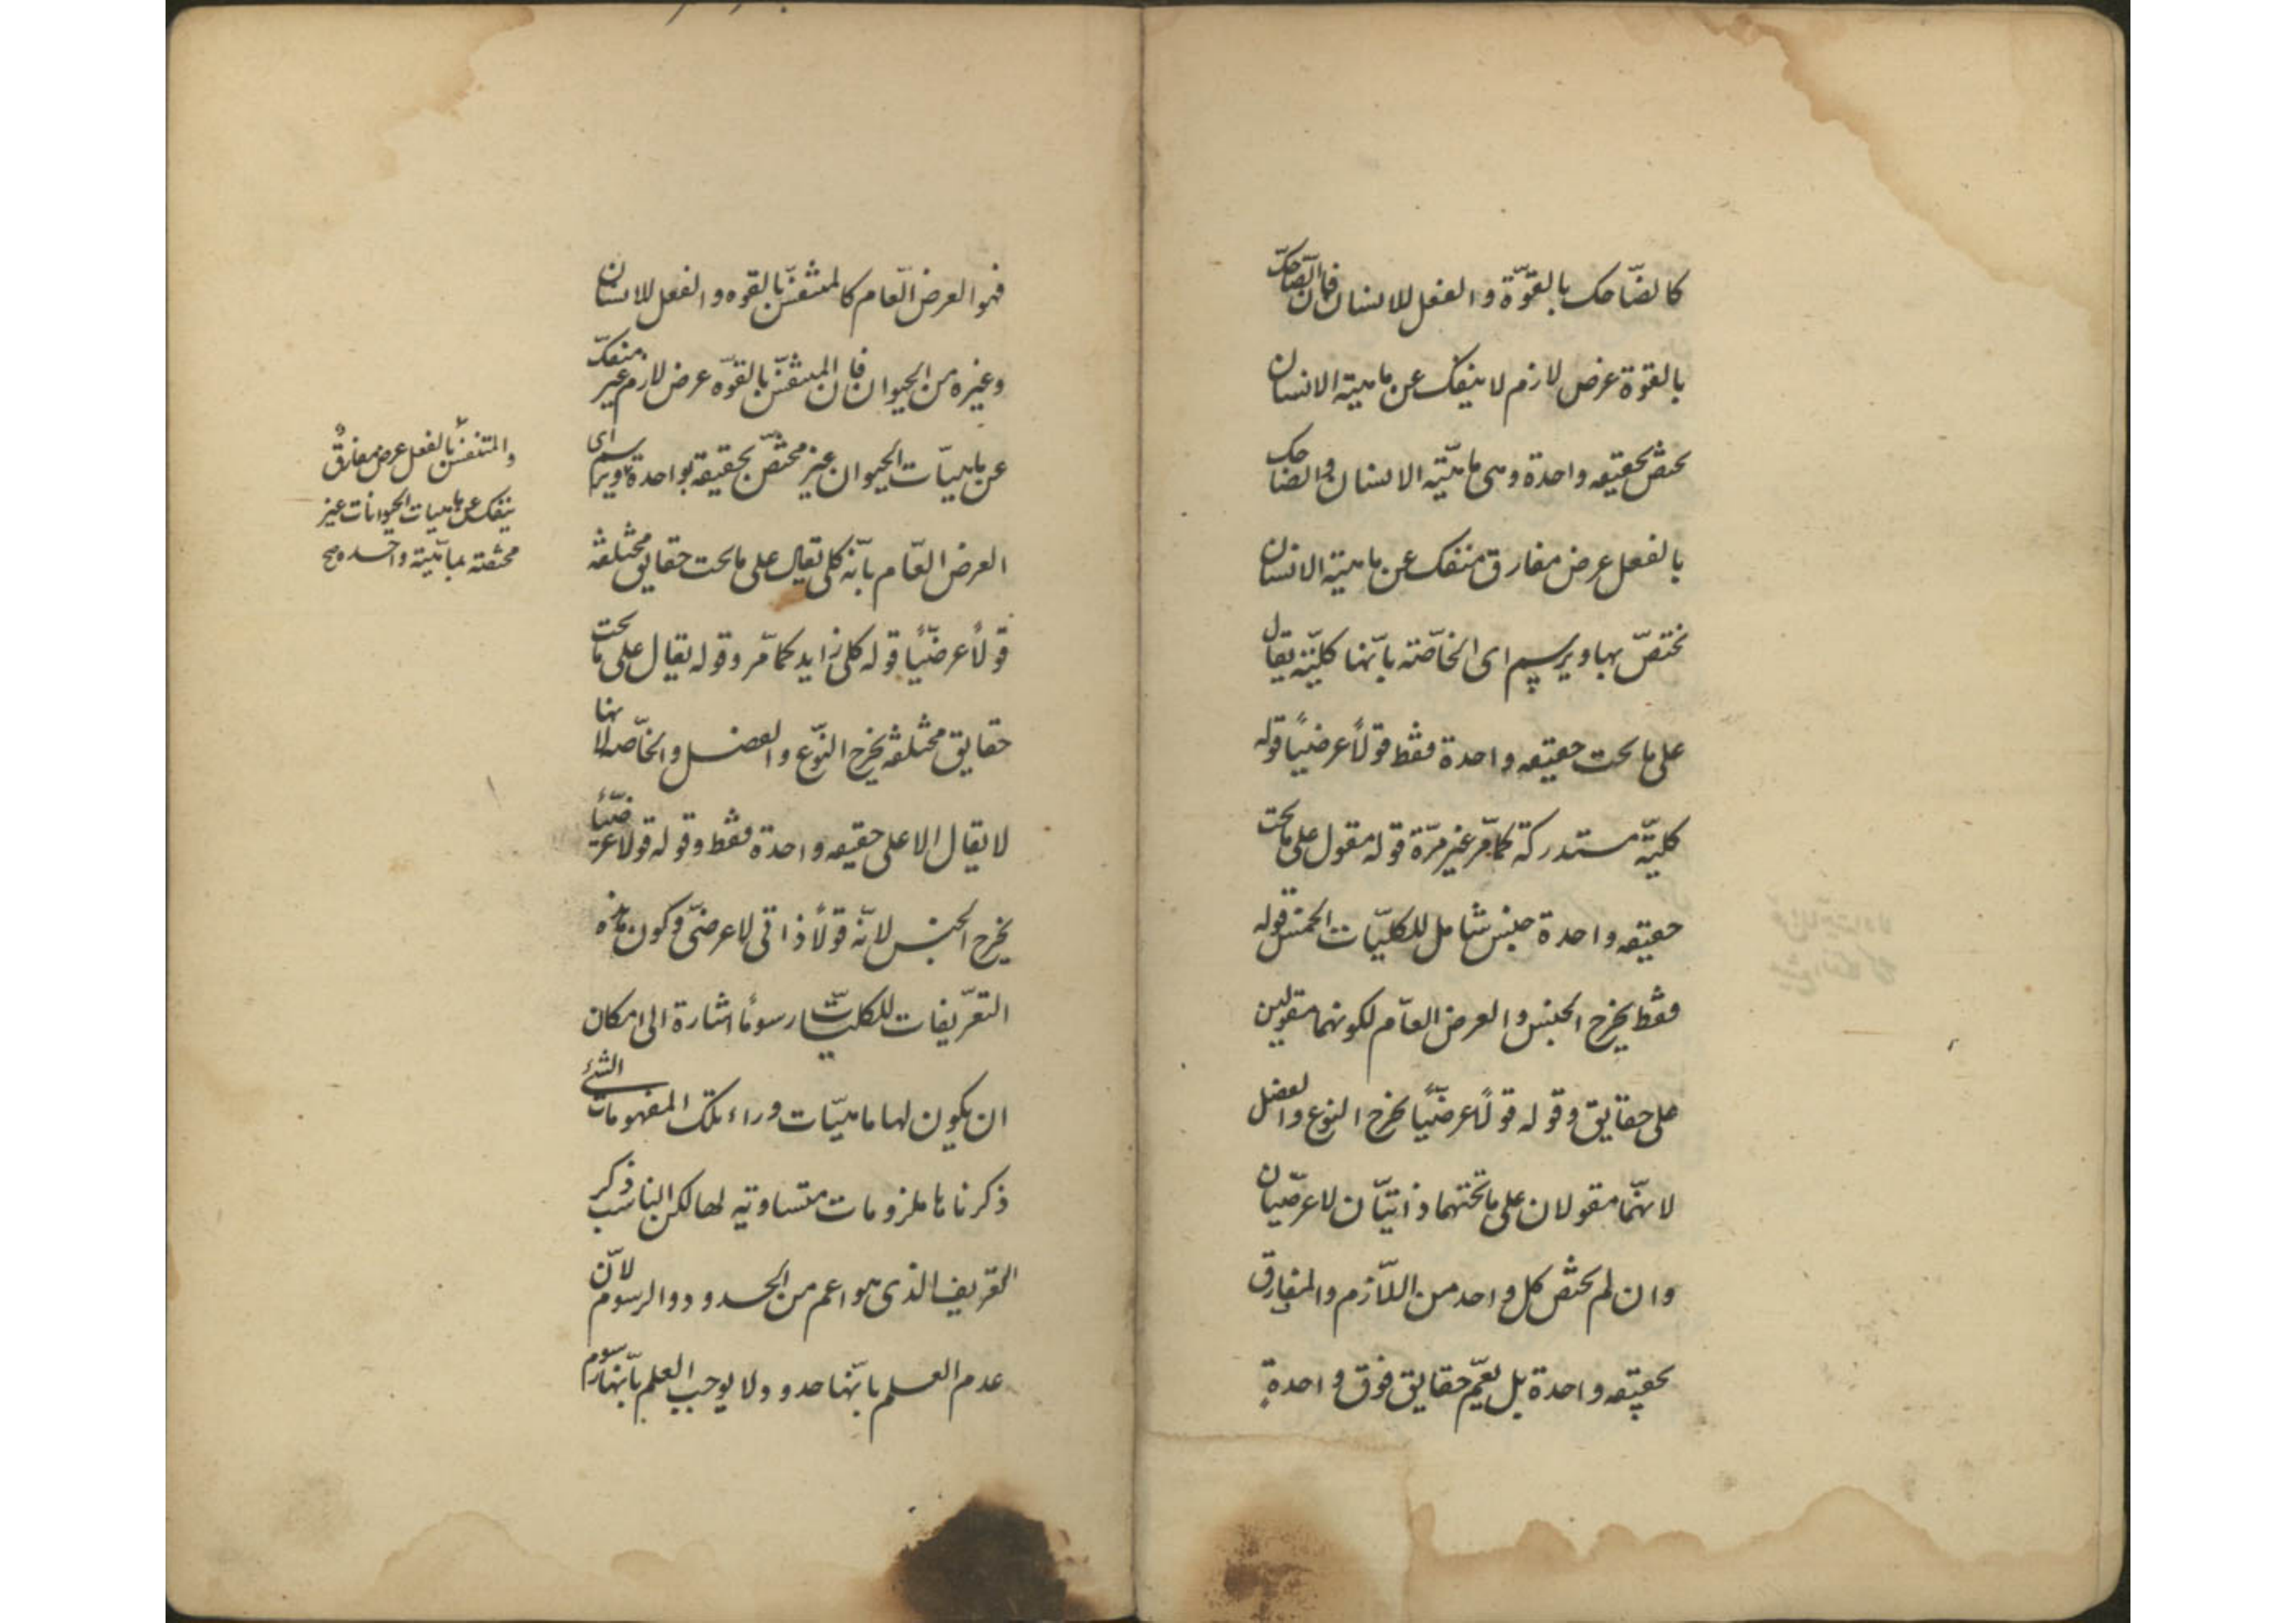 كالضّاحك بالقوّة والفعل للانسان فان الضّاحك
بالقوة عرض لازم لا ينفك عن ماهية الانسان
يختص بحقيقه واحدة وهى ماهيّته الانسان والضاحك
بالفعل عرض مفارق منفك عن ماهيته الانسان
يختصّ بها ويرسم اى الخاصّته بانّها كليّته يقال
على ما تحت حقيقه واحدة فقط قولاً عرضيًا قوله
كليّه مستدركة كما مرّ غير مرّة قوله مقول على ما تحت
حقيقه واحدة جنس شامل للكليّات الخمس قوله
فقط يخرج الجنس والعرض العامّ لكونهما مقولين
على حقايق وقوله قولاً عرضيًّا يخرج النوع والفصل
لانهمّا مقولان على ما تحتهما ذاتيّان لا عرضيّان
وان لم يختص كل واحد من اللاّزم والمفارق
بحقيقه واحدة بل يعمّ حقايق فوق واحدة
فهو العرض العّام كالمتنفسّ بالقوه والفعل للانسان
وغيره من الحيوان فان المتنفسّ بالقوّه عرض لازم غير منفكّ
عن ماهيّات الحيوان غير مختصّ بحقيقه واحدة ويرسم اى
العرض العّام بانّه كلى يقال على ما تحت حقايق مختلفه
قولاً عرضيًّا قوله كلى زايد كما مّر وقوله يقال على ما تحت
حقايق مختلفه يخرج النوّع والفصل والخاصّه لانها
لا يقال الا على حقيقه واحدة فقط وقوله قولا عرضيّاً
يخرج الجنس لانّه قولاً ذاتى لا عرضىّ وكون هذه
التعرّيفات للكليّات رسومًا اشارة الى امكان
ان يكون لها ماهيّات وراء تلك المفهومات التى
ذكرناها ملزومات متساويه لها لكن المناسب ذكر
التعريف الذى هو اعم من الحدود والرسوم لانّ
عدم العلم بانّها حدود لا يوجب العلم بانّها رسوم
والمتنفسّ بالفعل عرض مفارق
ينفك عن ماهيات الحيوانات غير
مختصّه بماهيّته واحده صح